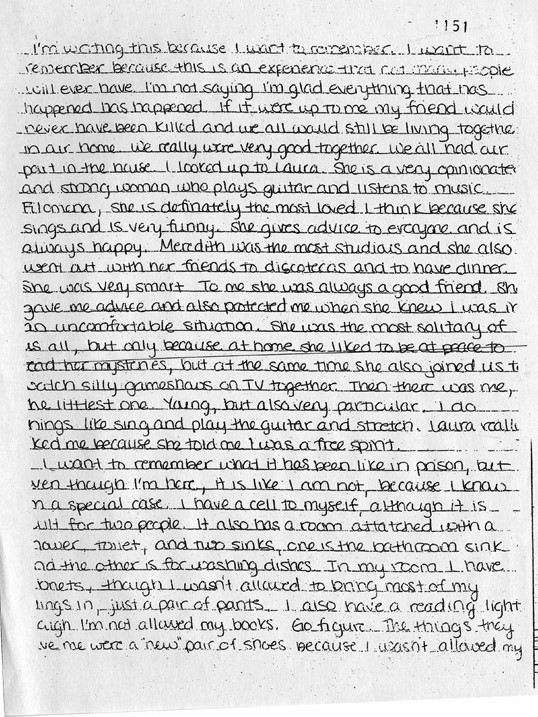 1151
I'm writing this because I want to remember. I want to
remember because this is an experience that not many people
will ever have. I'm not saying I'm glad everything that has
happened has happened. If it were up to me my friend would
never have been killed and we all would still be living togethe
in our home. We really were very good together. We all had our
part in the house. I looked up to Laura. She is a very opinionate
and strong woman who plays guitar and listens to music.
Filomena, she is definately the most loved I think because she
sings and is very funny. She gives advice to everyone and is
always happy. Meredith was the most studious and she also
went out with her friends to discotecas and to have dinner.
She was very smart. To me she was always a good friend. Sh
gave me advice and also protected me when she knew I was ir
an uncomfortable situation. She was the most solitary of
is all, but only because at home she liked to be at peace to
read her mysteries, but at the same time she also joined us t
watch silly gameshows on TV together. Then there was me,
he littlest one. Young, but also very particular. I do
hings like sing and play the guitar and stretch. Laura reall
ked me because she told me I was a free spirit.
I want to remember what it has been like in prison, but
ven though I'm here, it is like I am not, because I know
n a special case. I have a cell to myself, although it is
uilt for two people. It also has a room attatched with a
hower, toilet, and two sinks, one is the bathroom sink
nd the other is for washing dishes. In my room I have
binets, though I wasn't allowed to bring most of my
hings in, just a pair of pants. I also have a reading light
ough I'm not allowed my books. Go figure. The things they
ve me were a "new" pair of shoes because I wasn't allowed my